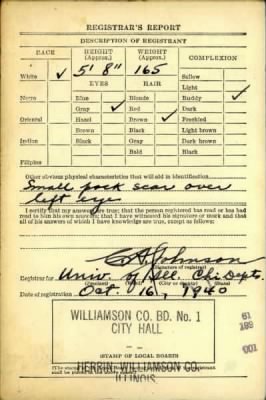 REGISTRAR'S REPORT
DESCRIPTION OF REGISTRANT
RACE HEIGHT (Approx.) WEIGHT (Approx.) COMPLEXION
White ✓ 5' 8" 165 Sallow
EYES HAIR Light
Negro Blue Blonde Ruddy ✓
Gray ✓ Red Dark
Oriental Hazel Brown ✓ Freckled
Brown Black Light brown
Indian Black Gray Dark brown
Bald Black
Filipino
Other obvious physical characteristics that will aid in identification
Small pock scar over
left eye
I certify that my answers are true; that the person registered has read or has had
read to him his own answers; that I have witnessed his signature or mark and that
all of his answers of which I have knowledge are true, except as follows:
Johnson
(Signature of registrar)
Registrar for Univ. of Ill. Chi Depts.
(Precinct) (Ward) (City or county) (State)
Date of registration Oct. 16, 1940
WILLIAMSON CO. BD. No. 1
CITY HALL
HERRIN, WILLIAMSON CO.
ILLINOIS
(STAMP OF LOCAL BOARD)
61
199
001